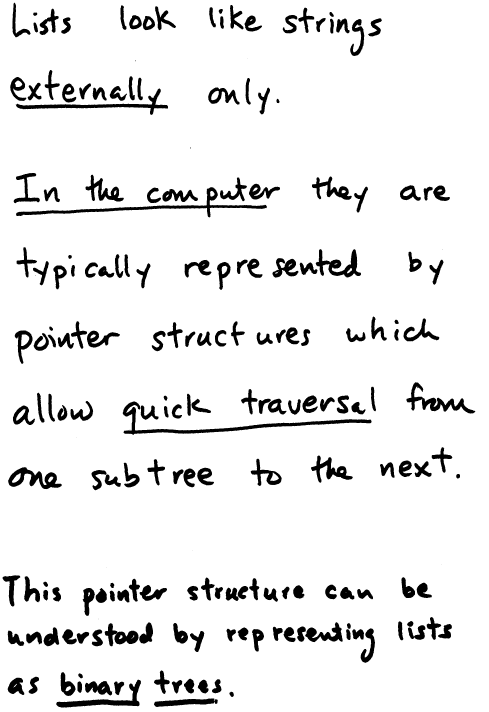 Lists look like strings
externally only.
In the computer they are
typically represented by
pointer structures which
allow quick traversal from
one subtree to the next.
This pointer structure can be
understood by representing lists
as binary trees.